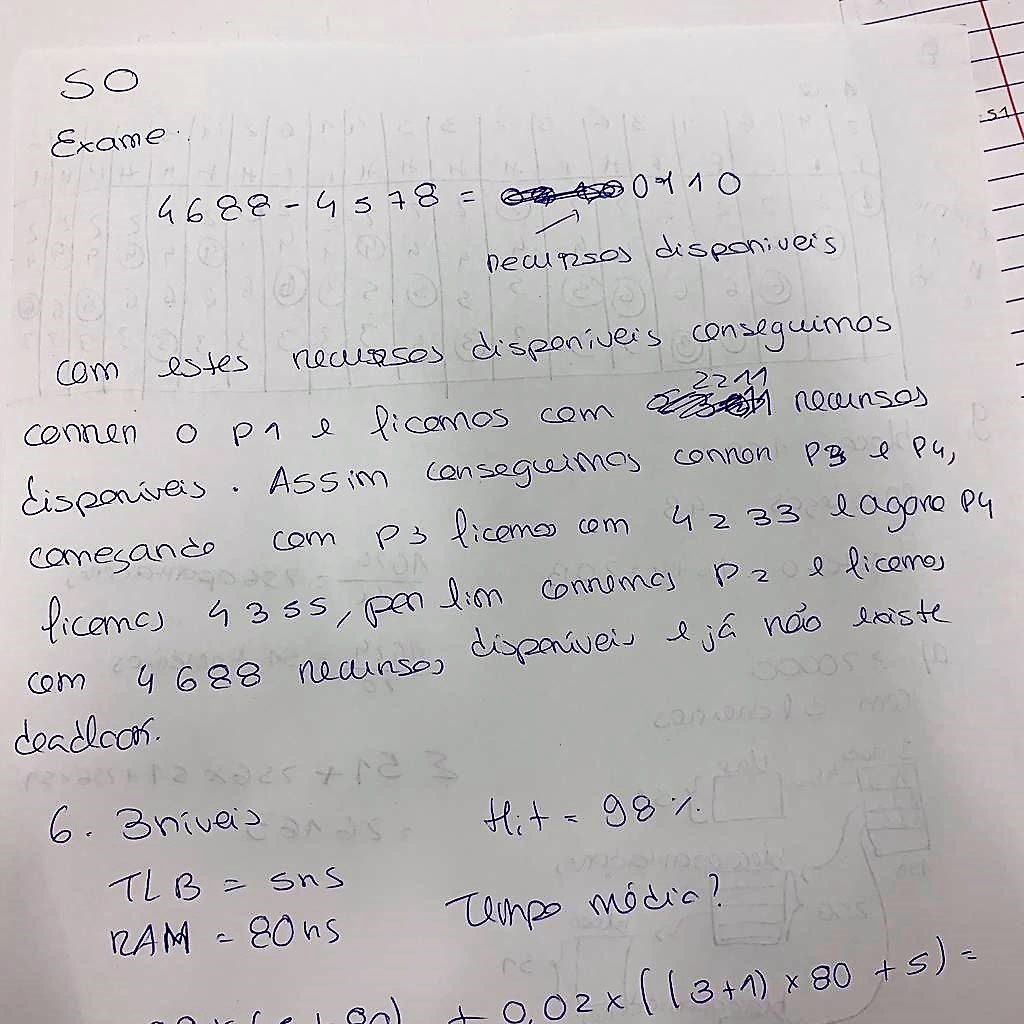 SO
Exame.
4688 - 4578 = 0110
recursos disponiveis
com estes recursos disponíveis conseguimos
2211
correr o P1 e ficamos com recursos
disponíveis. Assim conseguimos correr P3 e P4,
começando com P3 ficamos com 4233 e agora P4
ficamos 4355, por fim corremos P2 e ficamos
com 4688 recursos disponíveis e já não existe
6. 3 níveis Hit = 98%
TLB = 5ns
RAM = 80ns Tempo médio?
+ 0,02 x ((3+1) x 80 + 5) =
51